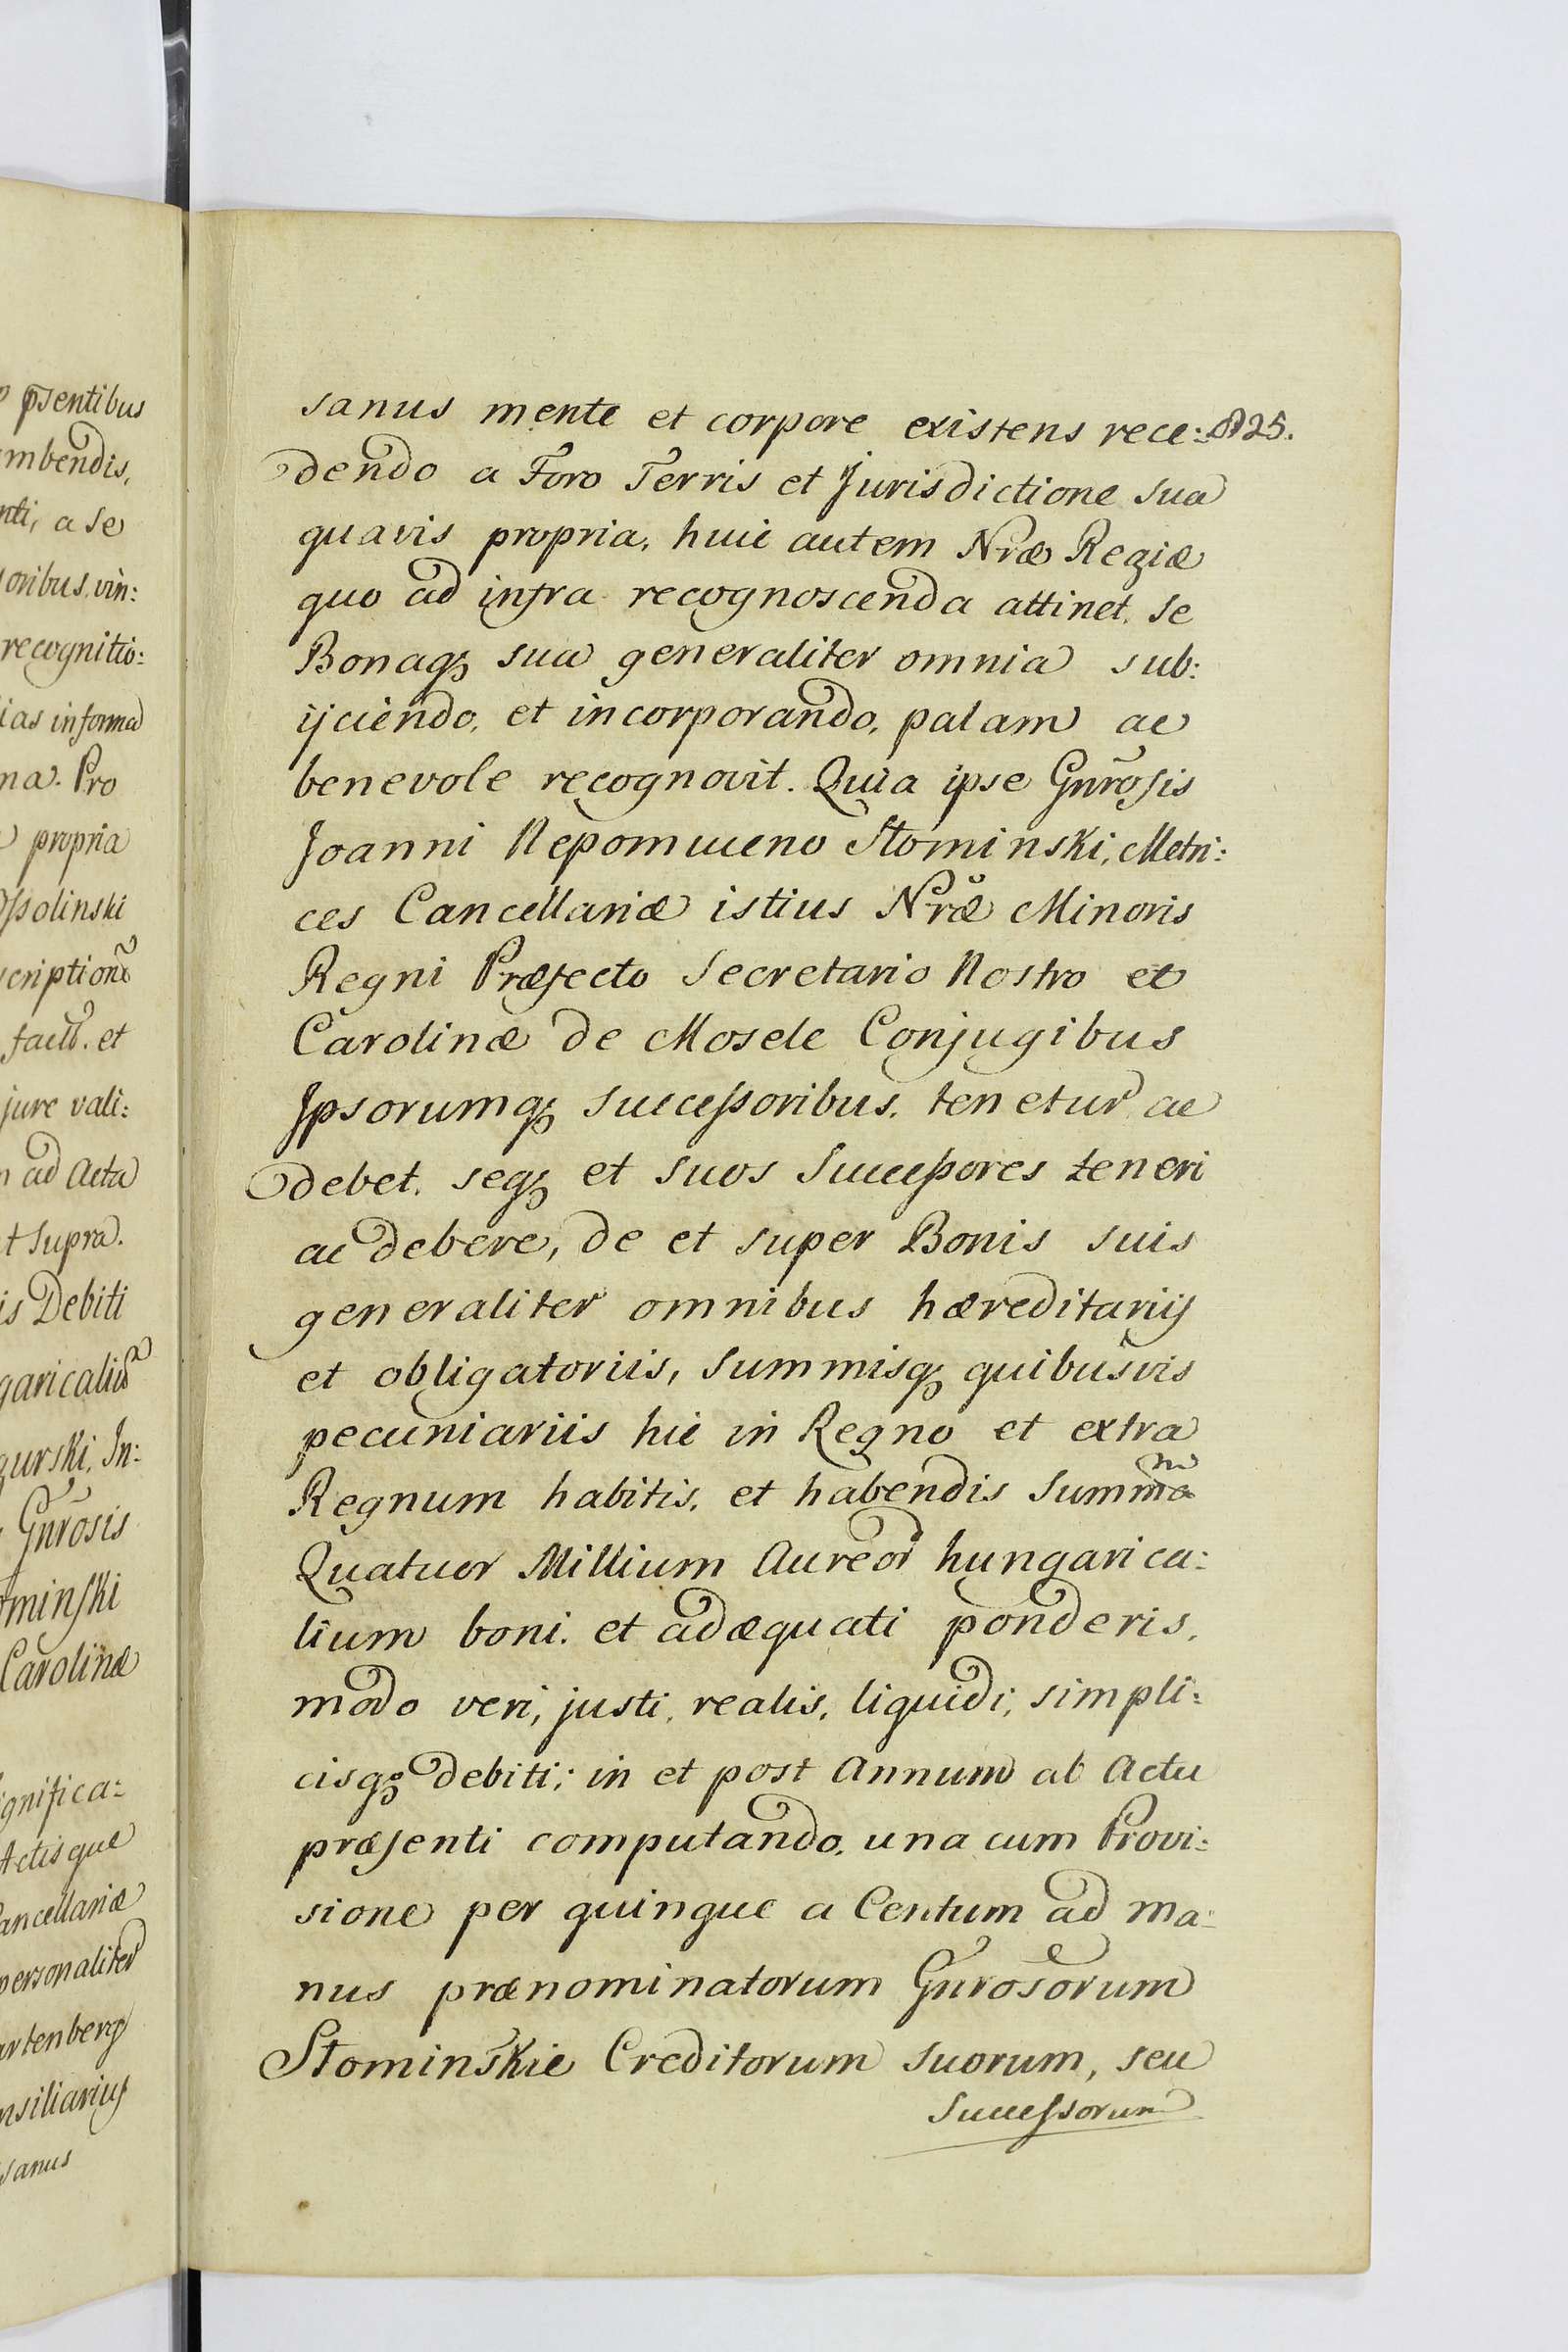 psentibus
mbendis,
nti, a se
oribus, vin:
recognitio:
ias in forma
na. Pro
propria
ossolinski
scriptione
factt. et
jure vali:
ad Acta
t Supra.
is Debiti
garicaliu
gurski, In:
Gnrosis
ominski
Carolinæ
ignifica:
Actisque
Cancellariæ
personaliter
artenberg
nsiliarius
sanus
sanus mente et corpore existens rece: 825.
dendo a Foro Terris et Jurisdictione sua
quavis propria, huic autem Nræ Regiæ
quo ad infra recognoscenda attinet, se
Bonaq; sua generaliter omnia sub:
ijciendo, et incorporando, palam ac
benevole recognovit. Quia ipse Gnrosis
Joanni Nepomuceno Słominski, Metri:
ces Cancellariæ istius Nræ Minoris
Regni Præfecto Secretario Nostro et
Carolinæ de Mosele Conjugibus
Ipsorumq; Successoribus, tenetur ac
debet, seq; et suos Successores teneri
ac debere, de et super Bonis suis
generaliter omnibus hæreditariis
et obligatoriis, Summisq; quibusvis
pecuniariis hic in Regno et extra
Regnum habitis, et habendis Summa m
Quatuor Millium Aureor hungarica:
lium boni, et adæquati ponderis,
modo veri, justi, realis, liquidi, simpli:
cisq; debiti; in et post Annum ab Actu
præsenti computando, una cum Provi:
sione per quinque a Centum ad ma:
nus prænominatorum Gnrosorum
Słominskie Creditorum suorum, seu
Successorum